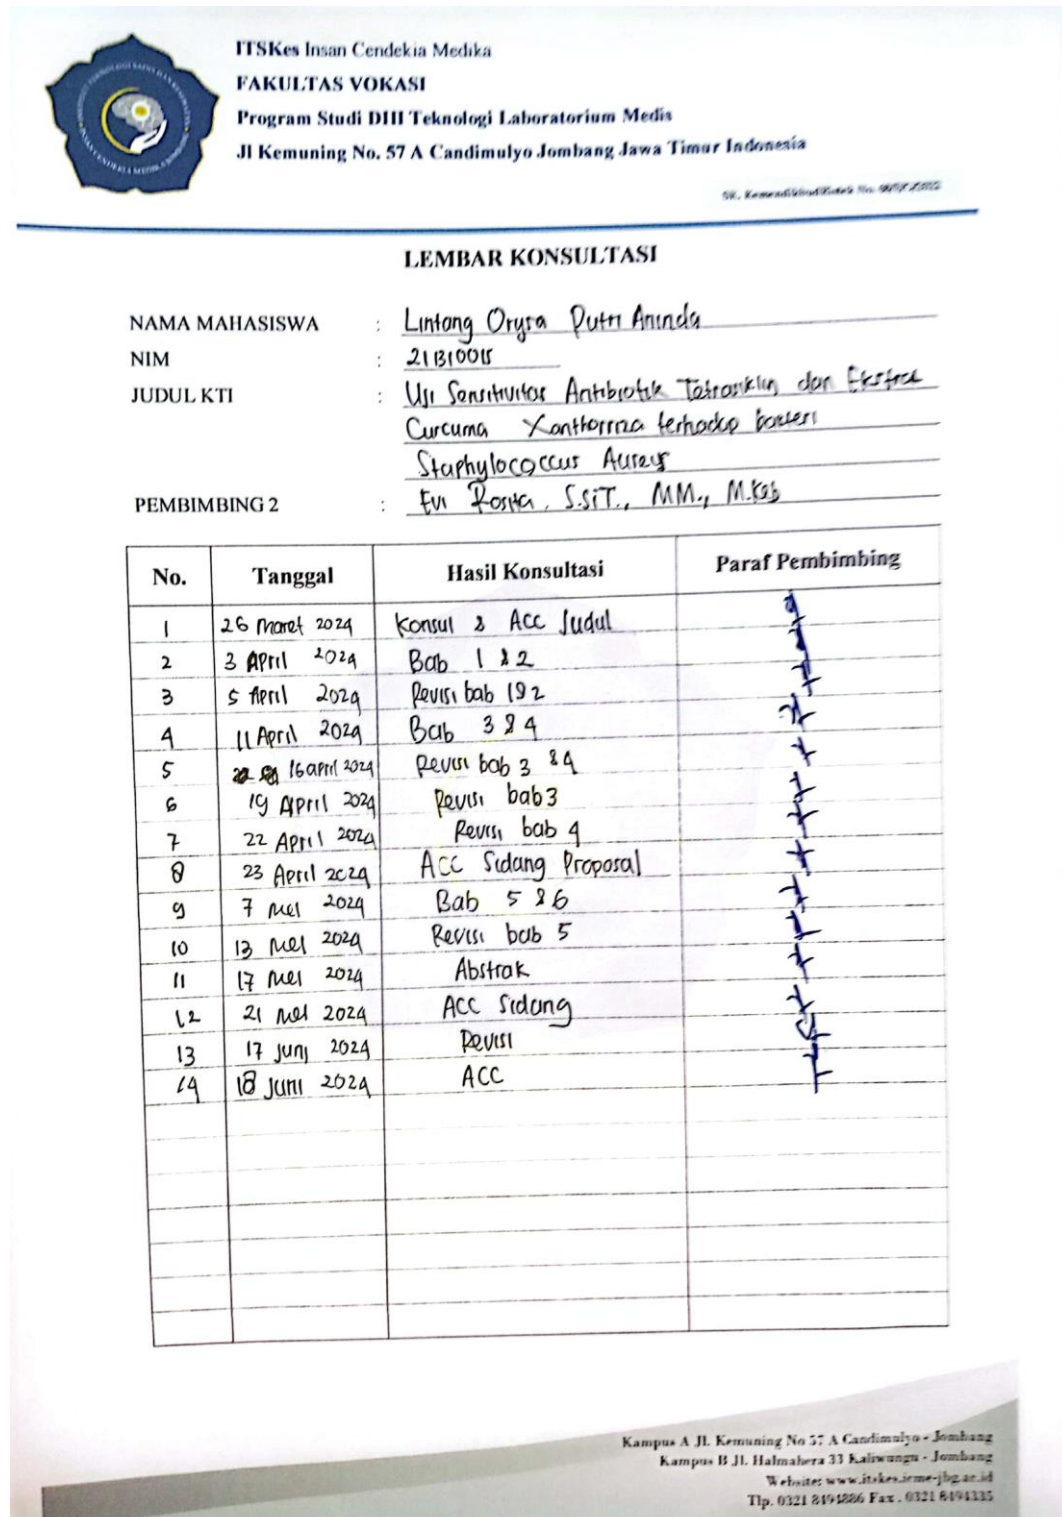 ITSKes Insan Cendekia Medika
FAKULTAS VOKASI
Program Studi DIII Teknologi Laboratorium Medis
Jl Kemuning No. 57 A Candimulyo Jombang Jawa Timur Indonesia
SK. Kemendikbudristek No.
LEMBAR KONSULTASI
NAMA MAHASISWA : Lintang Orysa Putri Aninda
NIM : 211310015
JUDUL KTI : Uji Sensitivitas Antibiotik Tetrasiklin dan Ekstrak
Curcuma Xanthorriza terhadap bakteri
Staphylococcus Aureus
PEMBIMBING 2 : Evi Rosita, S.SiT., MM., M.Keb
No. Tanggal Hasil Konsultasi Paraf Pembimbing
1 26 Maret 2024 Konsul & ACC Judul
2 3 April 2024 Bab 1 & 2
3 5 April 2024 Revisi bab 1 & 2
4 11 April 2024 Bab 3 & 4
5 16 april 2024 Revisi bab 3 & 4
6 19 April 2024 Revisi bab 3
7 22 April 2024 Revisi bab 4
8 23 April 2024 ACC Sidang Proposal
9 7 Mei 2024 Bab 5 & 6
10 13 Mei 2024 Revisi bab 5
11 17 Mei 2024 Abstrak
12 21 Mei 2024 ACC Sidang
13 17 Juni 2024 Revisi
14 18 Juni 2024 ACC
Kampus A Jl. Kemuning No 57 A Candimulyo - Jombang
Kampus B Jl. Halmahera 33 Kaliwungu - Jombang
Website: www.itskes.icme-jbg.ac.id
Tlp. 0321 8494886 Fax. 0321 8494335